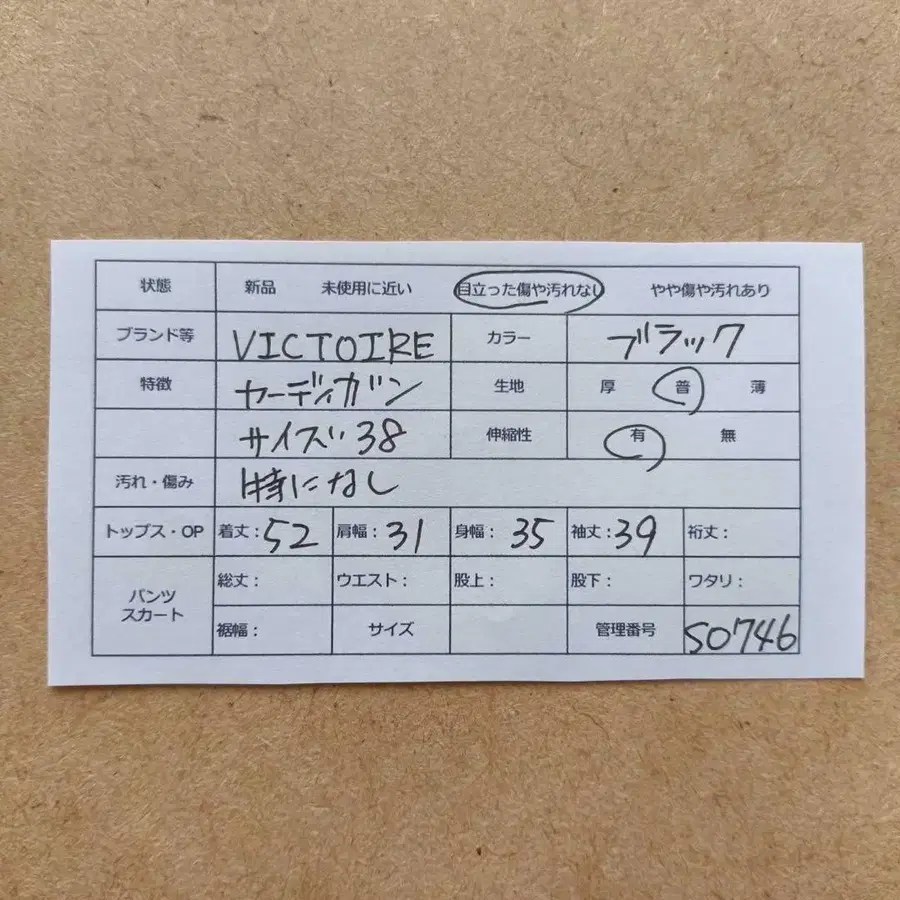 状態 新品 未使用に近い 目立った傷や汚れなし やや傷や汚れあり
ブランド等 VICTOIRE カラー ブラック
特徴 カーディガン 生地 厚 普 薄
サイズ 38 伸縮性 有 無
汚れ・傷み 特になし
トップス・OP 着丈：52 肩幅：31 身幅：35 袖丈：39 裄丈：
パンツ 総丈： ウエスト： 股上： 股下： ワタリ：
スカート
裾幅： サイズ 管理番号 S0746